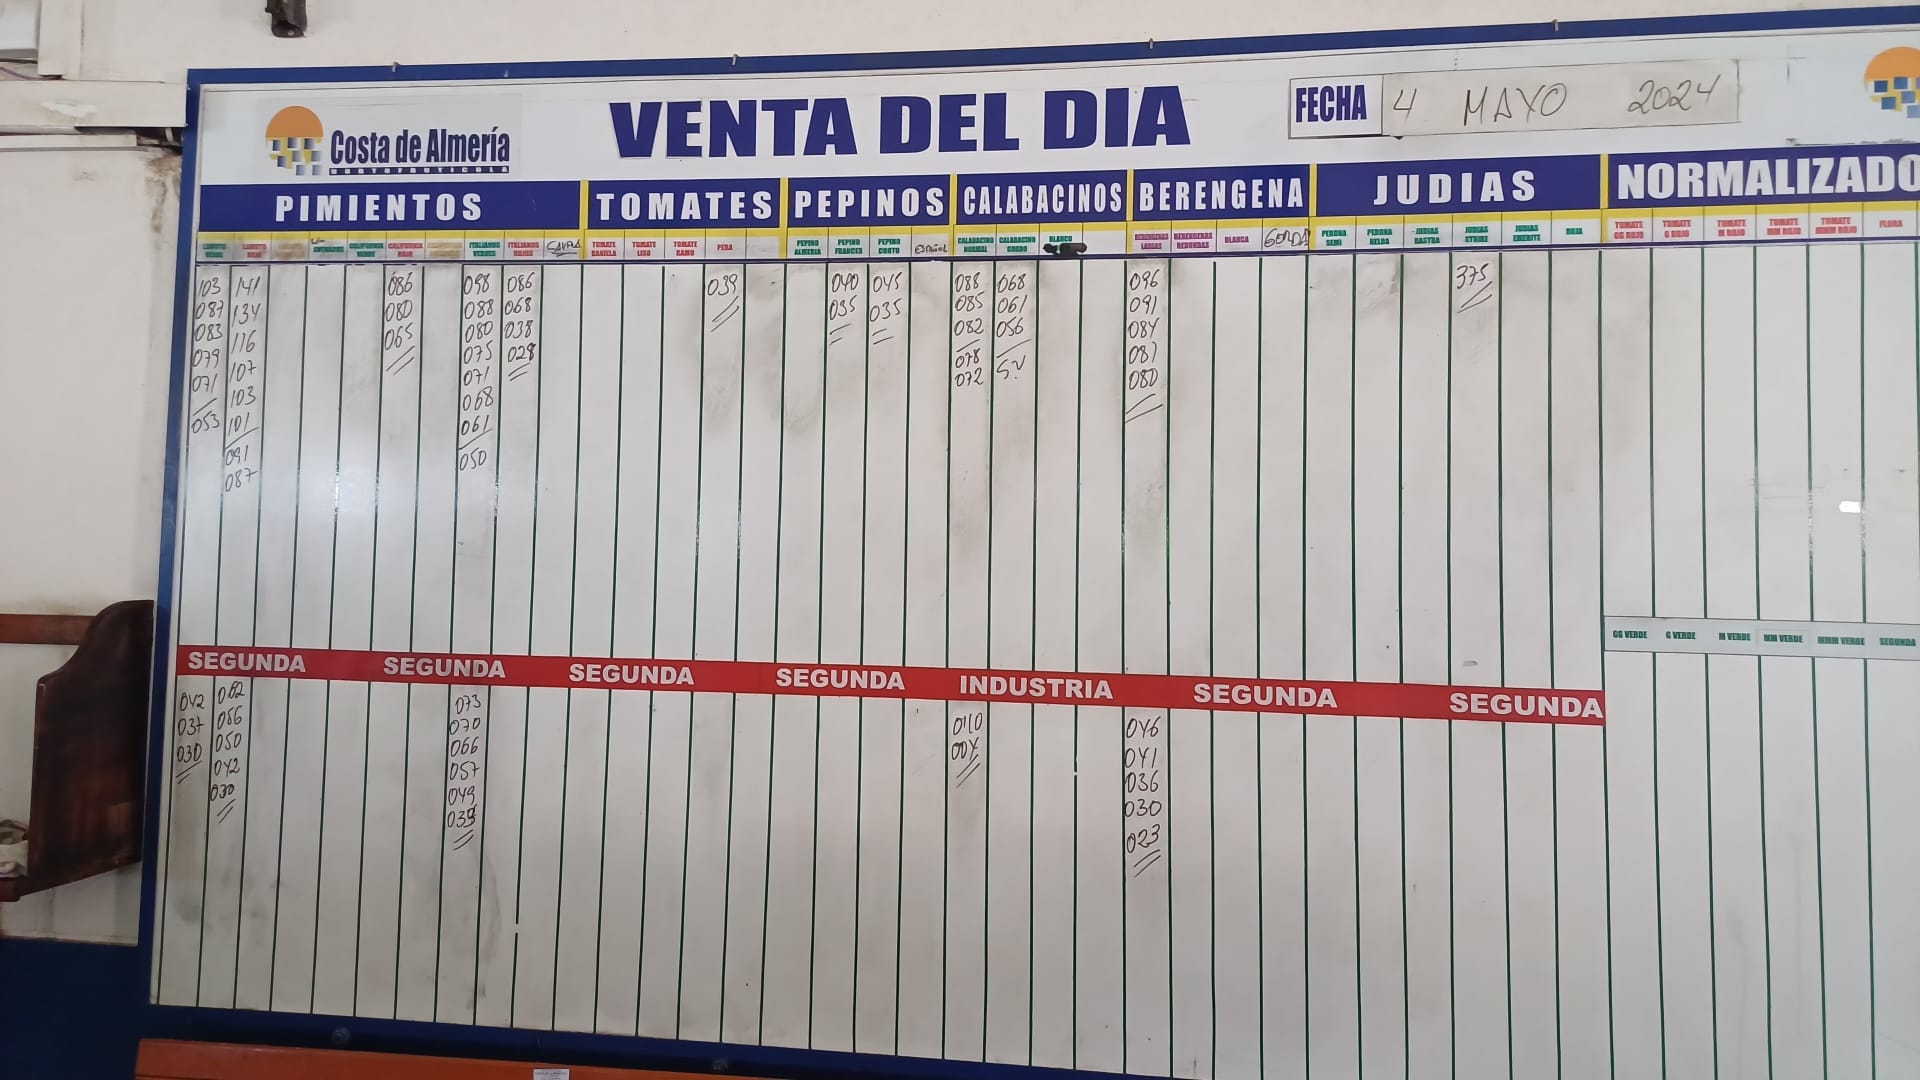 Costa de Almería
HORTOFRUTICOLA
VENTA DEL DIA
FECHA 4 MAYO 2024
PIMIENTOS TOMATES PEPINOS CALABACINOS BERENGENA JUDIAS NORMALIZADO
LAMUYO VERDE
LAMUYO ROJO
CALIFORNIA VERDE
CALIFORNIA ROJO
ITALIANOS VERDES
ITALIANOS ROJOS
TOMATE DANIELA
TOMATE LISO
TOMATE RAMO
PERA
PEPINO ALMERIA
PEPINO FRANCES
PEPINO CORTO
ESPAÑOL
CALABACINO NORMAL
CALABACINO GORDO
BLANCO
BERENGENAS LARGAS
BERENGENAS REDONDAS
BLANCA
GORDA
PERONA SEMI
PERONA HELDA
JUDIAS RASTRA
JUDIAS STRIKE
JUDIAS EMERITE
ROJA
TOMATE GG ROJO
TOMATE G ROJO
TOMATE M ROJO
TOMATE MM ROJO
TOMATE MMM ROJO
FLORA
103 141 086 098 086 039 040 045 088 068 096 375
087 134 080 088 068 035 035 085 061 091
083 116 065 080 038 082 056 084
079 107 075 028 078 081
071 103 071 072 080
053 101 068
091 061
087 050
GG VERDE G VERDE M VERDE MM VERDE MMM VERDE SEGUNDA
SEGUNDA SEGUNDA SEGUNDA SEGUNDA INDUSTRIA SEGUNDA SEGUNDA
042 062 073 046
037 056 070 004 041
030 050 066 036
042 057 030
030 049 023